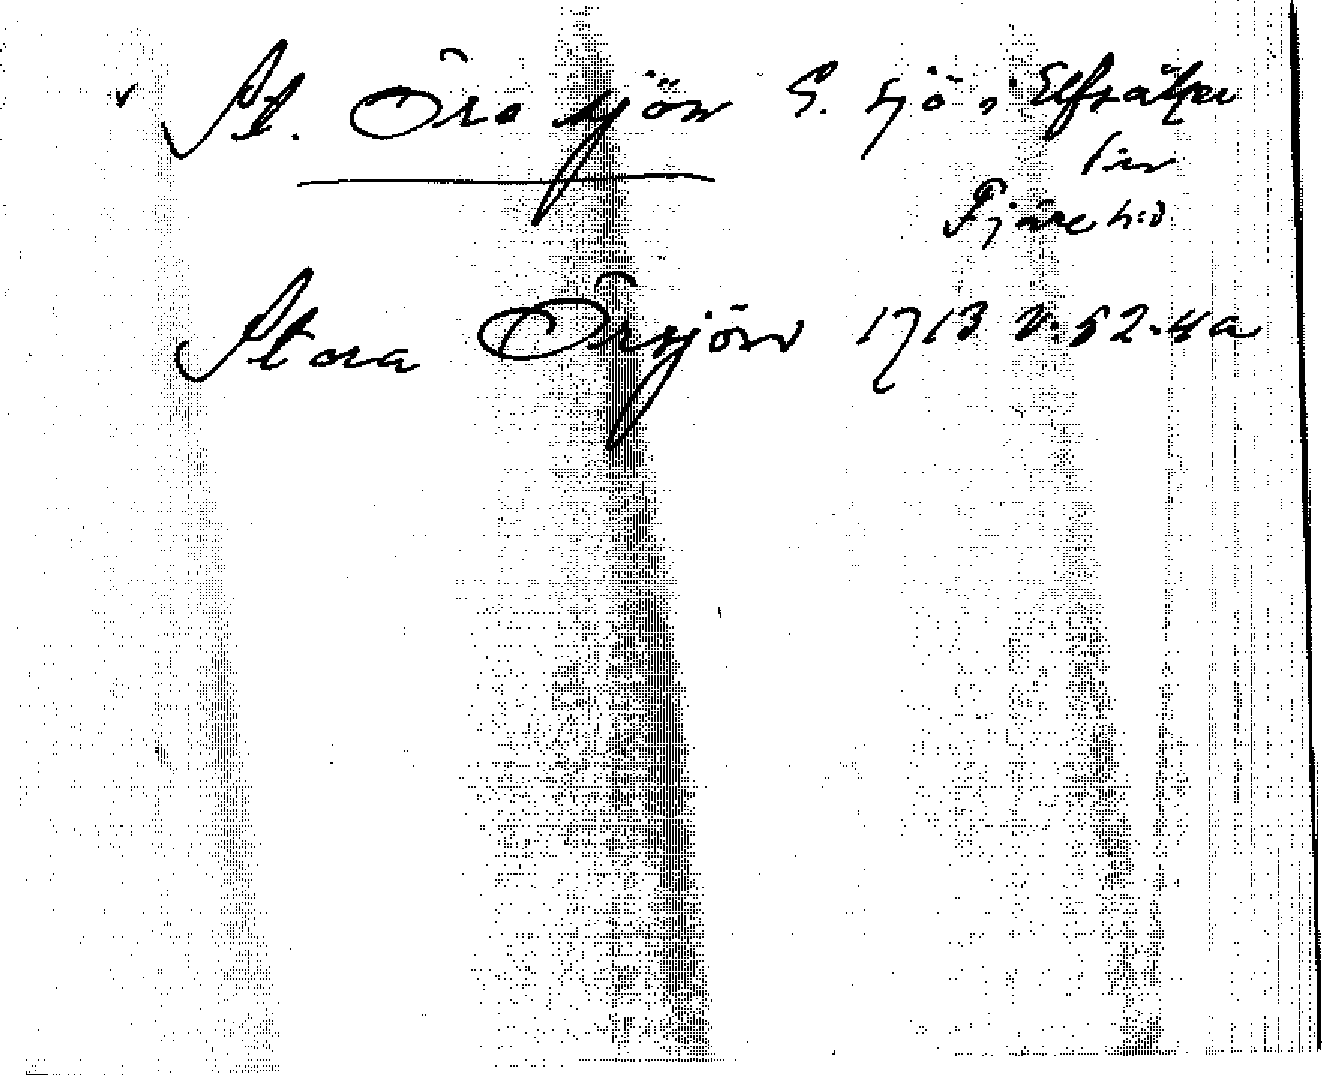 v St. Öra sjön S. sjö i Elfsåker
sn
Fjäre h:d
Stora Örsjön 1713 v. 52. 4 a